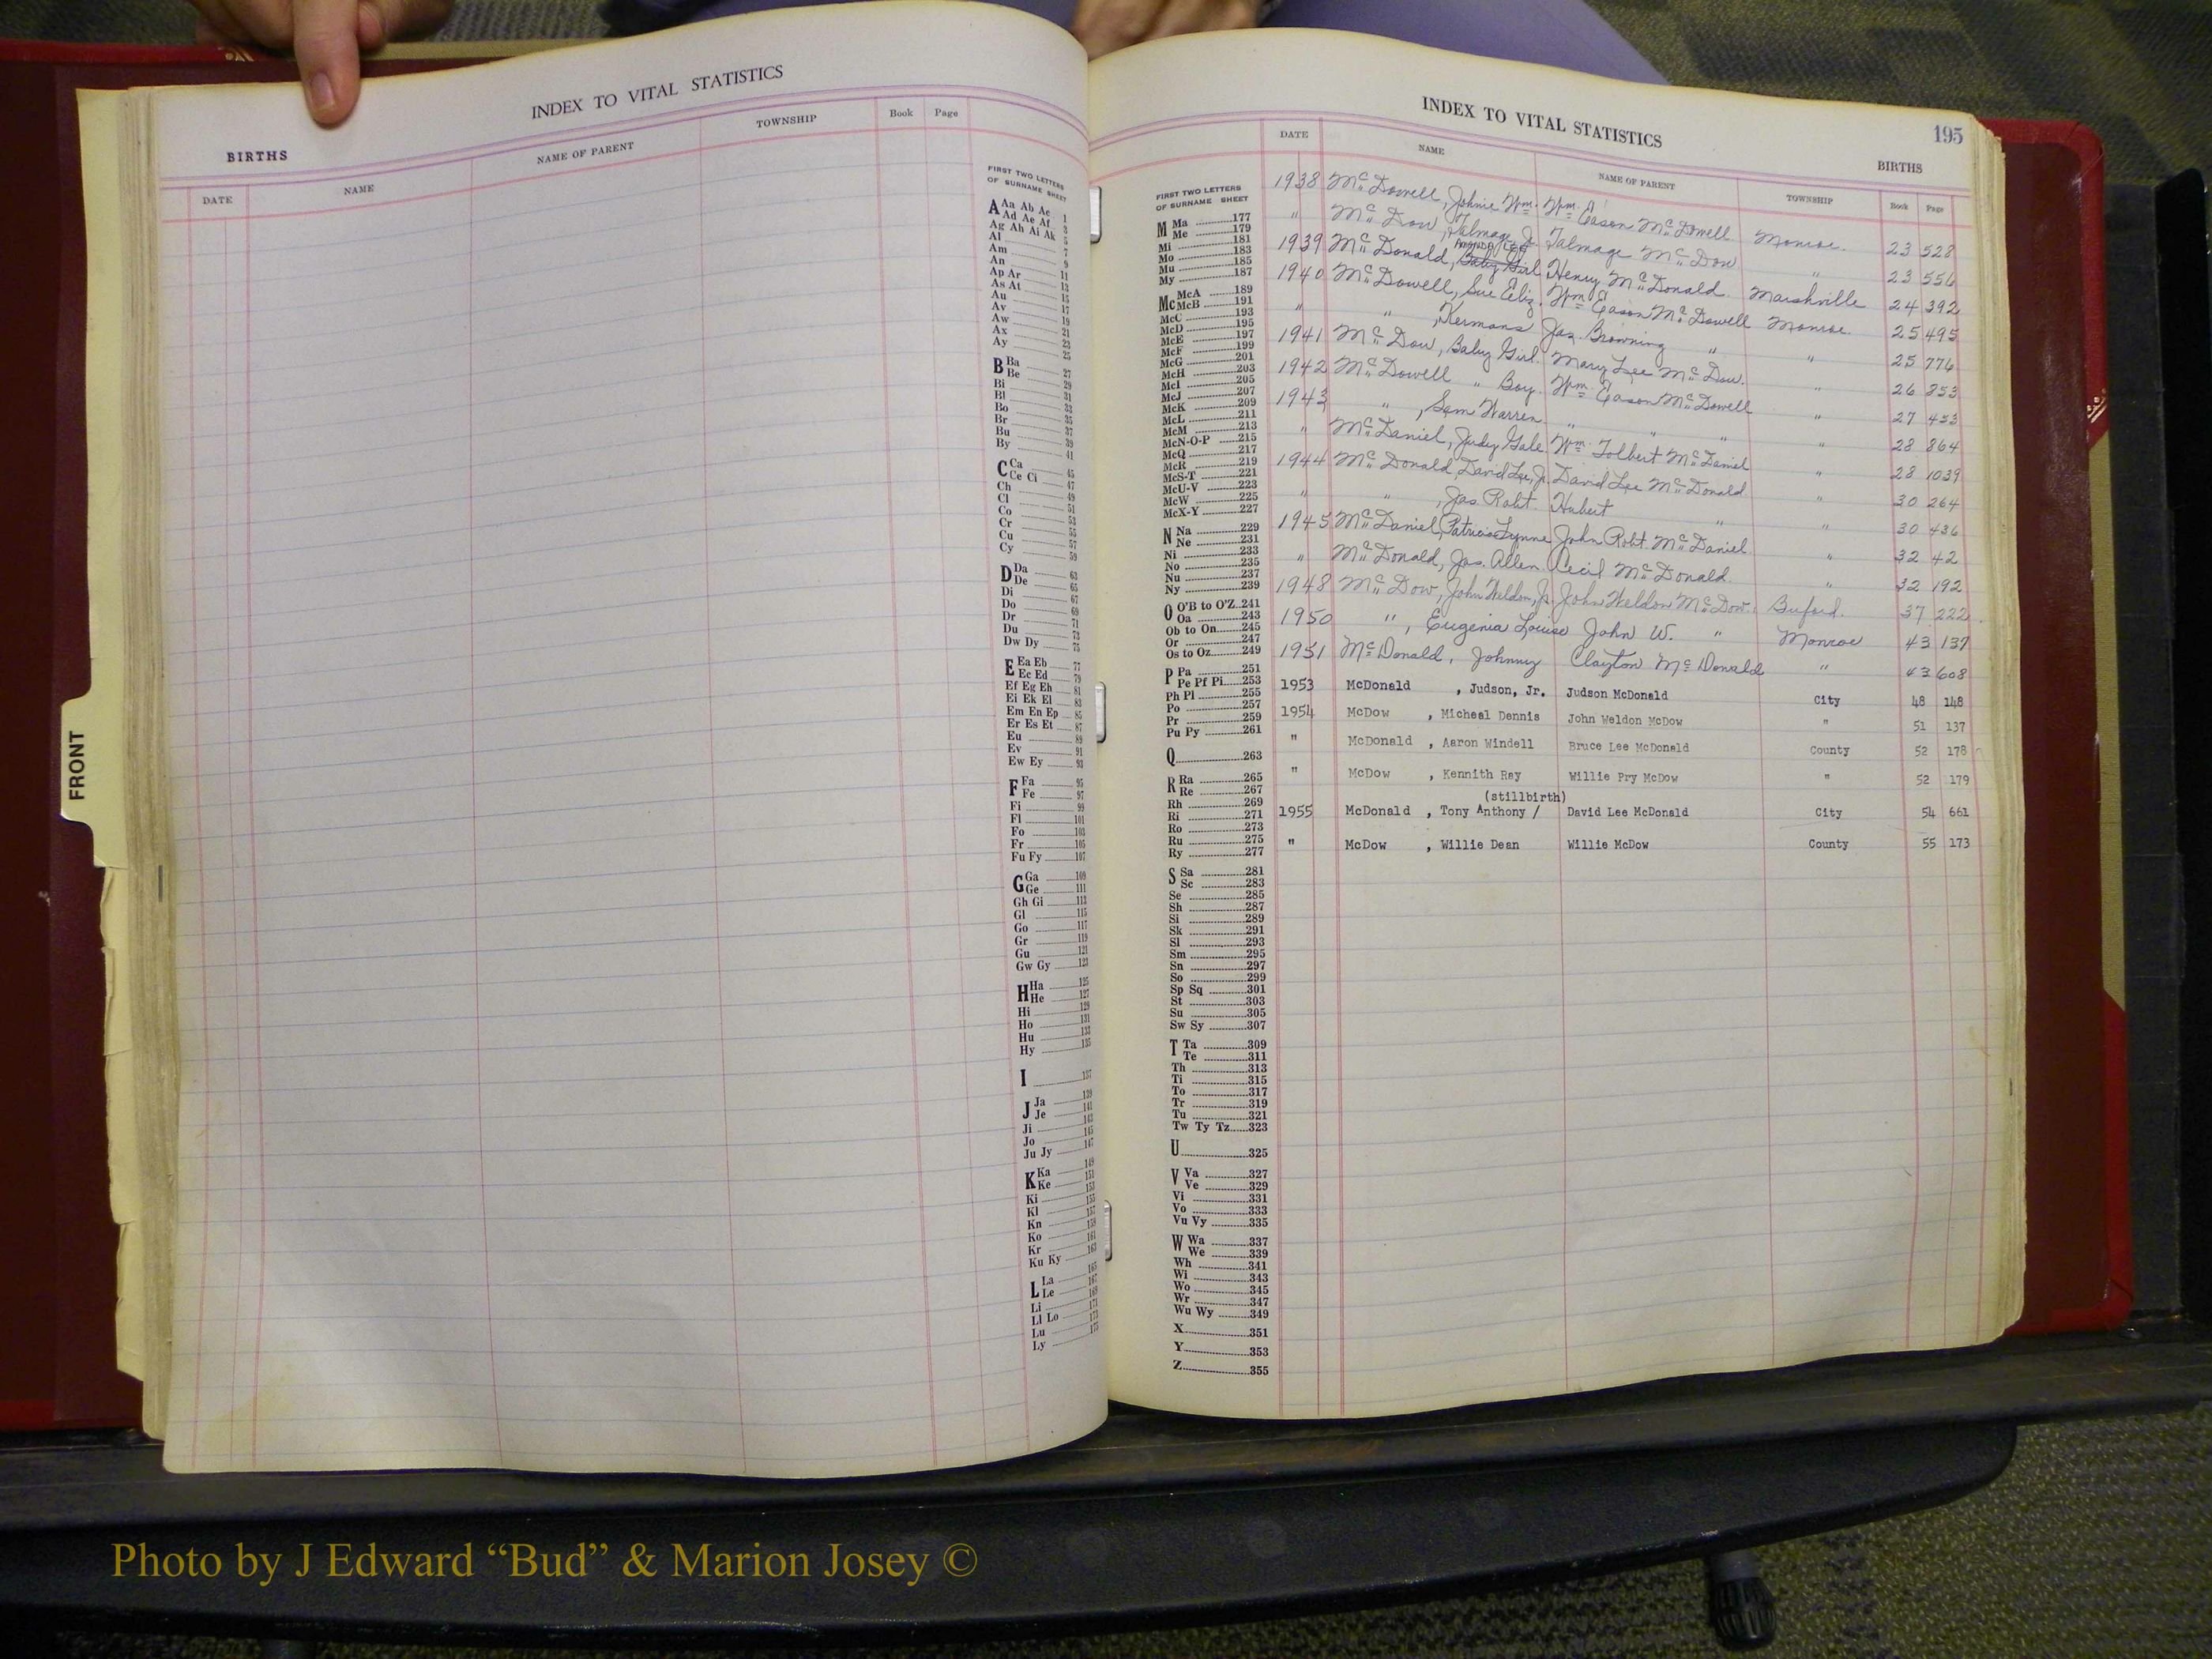 INDEX TO VITAL STATISTICS
BIRTHS
DATE NAME NAME OF PARENT TOWNSHIP Book Page
FIRST TWO LETTERS
OF SURNAME SHEET
A Aa Ab Ac 1
Ad Ae Af 3
Ag Ah Ai Ak 5
Al 7
Am 9
An
Ap Ar 11
As At 13
Au 15
Av 17
Aw 19
Ax 21
Ay 23
25
B Ba 27
Be 29
Bi 31
Bl 33
Bo 35
Br 37
Bu 41
By
C Ca 45
Ce Ci 47
Ch 49
Cl 51
Co 53
Cr 55
Cu 57
Cy 59
D Da 63
De 65
Di 67
Do 69
Dr 71
Du 73
Dw Dy 75
E Ea Eb 77
Ec Ed 79
Ef Eg Eh 81
Ei Ek El 83
Em En Ep 85
Er Es Et 87
Eu 89
Ev 91
Ew Ey 93
F Fa 95
Fe 97
Fi 99
Fl 101
Fo 103
Fr 105
Fu Fy 107
G Ga 109
Ge 111
Gh Gi 113
Gl 115
Go 117
Gr 119
Gu 121
Gw Gy 123
H Ha 125
He 127
Hi 129
Ho 131
Hu 133
Hy 135
I 137
J Ja 139
Je 141
Ji 143
Jo 145
Ju Jy 147
K Ka 149
Ke 151
Ki 153
Kl 155
Kn 157
Ko 159
Kr 161
Ku Ky 163
L La 165
Le 167
Li 169
Ll Lo 171
Lu 173
Ly 175
FRONT
INDEX TO VITAL STATISTICS 195
BIRTHS
DATE NAME NAME OF PARENT TOWNSHIP Book Page
FIRST TWO LETTERS
OF SURNAME SHEET
M Ma 177
Me 179
Mi 181
Mo 183
Mu 185
My 187
Mc McA 189
McB 191
McC 193
McD 195
McE 197
McF 199
McG 201
McH 203
McI 205
McJ 207
McK 209
McL 211
McM 213
McN-O-P 215
McQ 217
McR 219
McS-T 221
McU-V 223
McW 225
McX-Y 227
N Na 229
Ne 231
Ni 233
No 235
Nu 237
Ny 239
O O'B to O'Z 241
Oa 243
Ob to On 245
Or 247
Os to Oz 249
P Pa 251
Pe Pf Pi 253
Ph Pl 255
Po 257
Pr 259
Pu Py 261
Q 263
R Ra 265
Re 267
Rh 269
Ri 271
Ro 273
Ru 275
Ry 277
S Sa 281
Sc 283
Se 285
Sh 287
Si 289
Sk 291
Sl 293
Sm 295
Sn 297
So 299
Sp Sq 301
St 303
Su 305
Sw Sy 307
T Ta 309
Te 311
Th 313
Ti 315
To 317
Tr 319
Tu 321
Tw Ty Tz 323
U 325
V Va 327
Ve 329
Vi 331
Vo 333
Vu Vy 335
W Wa 337
We 339
Wh 341
Wi 343
Wo 345
Wr 347
Wu Wy 349
X 351
Y 353
Z 355
1938 McDowell, Johnie Wm. Wm. Eason McDowell Monroe 23 528
" McDow, Talmage Jr. Talmage McDow " 23 556
1939 McDonald, Baby Girl Henry McDonald Marshville 24 392
1940 McDowell, Sue Eliz. Wm. Eason McDowell Monroe 25 495
" " , Kermans Jas. Browning " " 25 776
1941 McDow, Baby Girl Mary Lee McDow " 26 853
1942 McDowell " Boy Wm. Eason McDowell " 27 453
1943 " , Sam Warren " " " " 28 864
" McDaniel, Judy Gale Wm. Tolbert McDaniel " 28 1039
1944 McDonald, David Lee, Jr. David Lee McDonald " 30 264
" " , Jas. Robt. Hubert " " 30 436
1945 McDaniel, Patricia Lynne John Robt. McDaniel " 32 42
" McDonald, Jas. Allen Cecil McDonald " 32 192
1948 McDow, John Weldon, Jr. John Weldon McDow Buford 37 222
1950 " , Eugenia Louise John W. " Monroe 43 137
1951 McDonald, Johnny Clayton McDonald " 43 608
1953 McDonald , Judson, Jr. Judson McDonald City 48 148
1954 McDow , Micheal Dennis John Weldon McDow " 51 137
" McDonald , Aaron Windell Bruce Lee McDonald County 52 178
" McDow , Kennith Ray Willie Pry McDow " 52 179
(stillbirth)
1955 McDonald , Tony Anthony / David Lee McDonald City 54 661
" McDow , Willie Dean Willie McDow County 55 173
Photo by J Edward “Bud” & Marion Josey ©